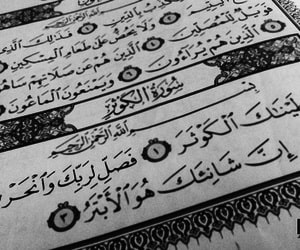 بِٱلدِّينِ ۝١ فَذَٰلِكَ ٱلَّذِي
وَلَا يَحُضُّ عَلَىٰ طَعَامِ ٱلْمِسْكِينِ
فَوَيْلٌ لِّلْمُصَلِّينَ ۝٤ ٱلَّذِينَ هُمْ عَن صَلَاتِهِمْ سَاهُونَ
ٱلَّذِينَ هُمْ يُرَآءُونَ ۝٦ وَيَمْنَعُونَ ٱلْمَاعُونَ
سُورَةُ ٱلْكَوْثَرِ
بِسْمِ ٱللَّهِ ٱلرَّحْمَٰنِ ٱلرَّحِيمِ
أَعْطَيْنَٰكَ ٱلْكَوْثَرَ ۝١ فَصَلِّ لِرَبِّكَ وَٱنْحَرْ
إِنَّ شَانِئَكَ هُوَ ٱلْأَبْتَرُ ۝٣